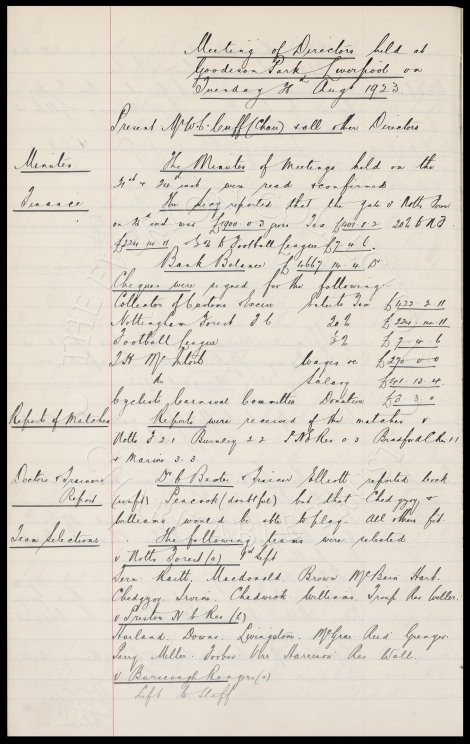 Meeting of Directors held at
Goodison Park, Liverpool on
Tuesday Augt 1923
Present Mr W.C. Cuff (Chair) & all other Directors
Minutes
The Minutes of Meetings held on the
were read & confirmed.
Finance
The secy reported that the gate v Notts Forest
on inst was £1900.0.3 gross Tax £401.1.2 20% to N.F.
£224.14.11 & ½% to Football League £7.4.6.
Bank Balance £4667.14.4 Dr
Cheques were signed for the following
Collector of Customs & Excise Tax £422.2.11
Nottingham Forest F.C 20% £224.14.11
Football League ½% £7.4.6
T.H. McIntosh Wages &c £270.0.0
do Salary £101.13.4
Cyclists Carnival Committee Donation £3.3.0
Report of Matches
Reports were received of the matches v
Notts F 2.1 Burnley 2.2 P.N.E Res 0.3 Bradford C Res 1.1
& Marine 3.3
Doctors & Trainers
Report
Dr C Baxter & Trainer Elliott reported
(unfit) Peacock (doubtful) but that Chedgzoy &
Williams would be able to play. All others fit.
Team Selections
The following teams were selected
v Notts Forest (a) Sept
Fern. Raitt, Macdonald. Brown McBain Hart.
Chedgzoy. Irvine. Chadwick. Williams. Troup Res Weller.
v Preston N.E Res (h)
Harland. Downs. Livingstone. McGrae Reid Grenyer
Parry. Miller. Forbes Virr Harrison Res Wall.
v Burscough Rangers (a)
Left to Staff